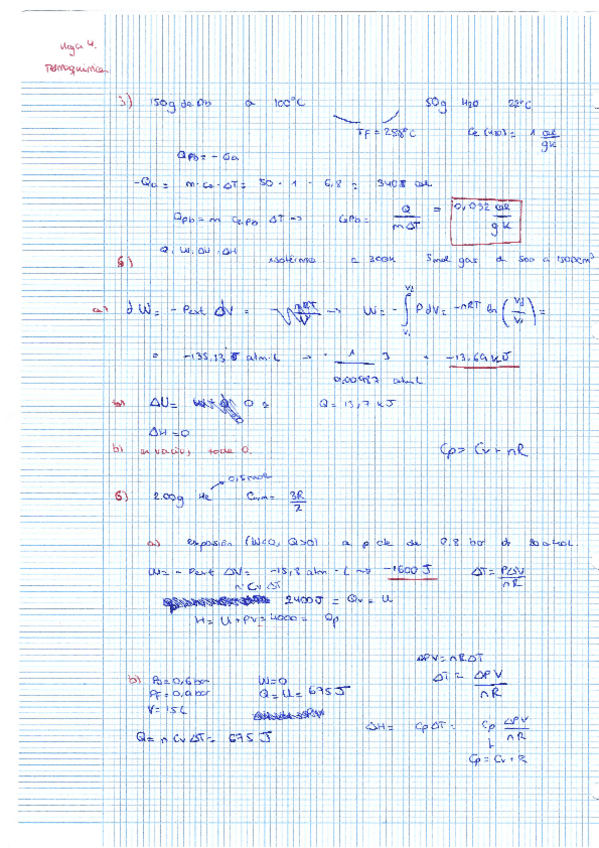 Hoja 4.
Termoquímica
3) 150g de Pb a 100°C 50g H2O 22°C
TF = 28,8°C Ce (H2O) = 1 cal/gK
QPb = -Qa
-Qa = m · ce · ΔT = 50 · 1 · 6,8 = 340 cal
QPb = m Ce,Pb ΔT → CePb = Q/mΔT = 0,032 cal/gK
Q, W, ΔU, ΔH
5) isotérmico a 300K 5mol gas de 500 a 1500cm³
a) dW = -Pext dV = nRT/V → W = -∫ P dV = -nRT ln (Vf/Vi) =
= -135,13 atm·L → · 1 J / 0,00987 atm·L = -13,69 kJ
ΔU = 0 Q = 13,7 kJ
ΔH = 0
b) en vacío, todo 0. Cp = Cv + nR
0,5mol
6) 2.00g He Cv,m = 3R/2
a) expansión (W<0, Q>0) a p cte de 0.8 bar de
W = -Pext ΔV = -15,8 atm·L → -1600 J ΔT = PΔV/nR
n Cv ΔT
2400J = Qv = U
H = U + PV = 4000 = Qp
ΔPV = nRΔT
b) P0 = 0,6 bar W=0 ΔT = ΔPV/nR
PF = 0,9 bar Q = U = 675 J
V = 15L
ΔH = Cp ΔT = Cp ΔPV/nR
Q = n Cv ΔT = 675 J
Cp = Cv + R